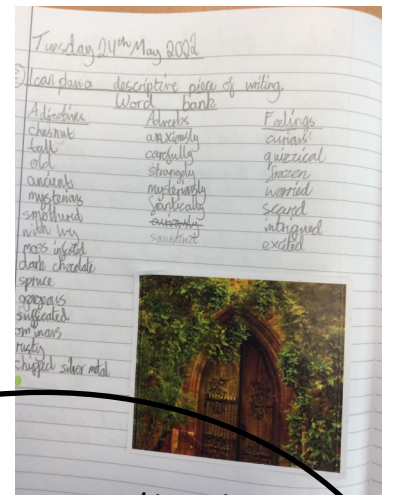 Tuesday 24th May 2022
I can plan a descriptive piece of writing.
Word bank
Adjectives
chesnut
tall
old
ancient
mysterious
smothered
with ivy
moss infested
dark chocolate
spruce
gorgeous
suffocated
ominous
rusty
chipped silver metal
Adverbs
anxiously
carefully
strangely
mysteriously
frantically
curiously
Feelings
curious
quizzical
frozen
worried
scared
intrigued
excited